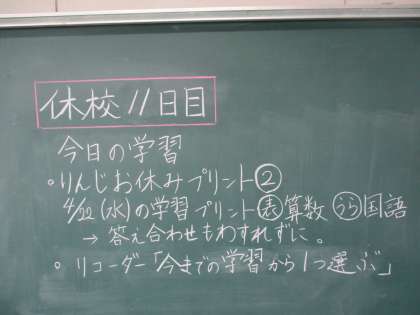 休校11日目
今日の学習
。りんじお休みプリント②
4/22(水)の学習プリント㊤算数 うら国語
→ 答え合わせもわすれずに。
。リコーダー「今までの学習から1つ選ぶ」